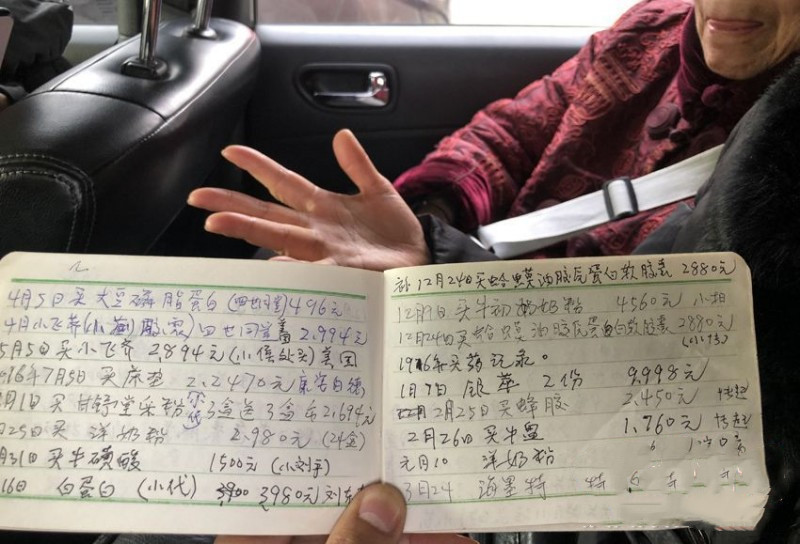 4月5日买 大豆磷脂蛋白 (四世同堂) 496元
4月小飞荠 四世同堂 2.994元
5月5日买小飞荠 2.894元 (小伟处买) 美国
016年7月5日 买床垫 2.2470元
月1日买 甘舒堂朵粉 3盒送3盒 2.694元
月25日买 洋奶粉 2.980元 (24盒)
月31日买牛磺酸 1500元 (小刘手)
16日 白蛋白 (小代) 3980元 刘
补12月24日买蛤蟆油胶原蛋白软胶囊 2880元
12月9日买牛初奶奶粉 4560元 小
12月24日买蛤蟆油胶原蛋白软胶囊 2880元
19\6年买药记录。
1月7日 银华 2份 9.998元
2月25日买蜂胶 2.450元
2月26日买牛 1.760元
元月10 洋奶粉
3月24 海墨特